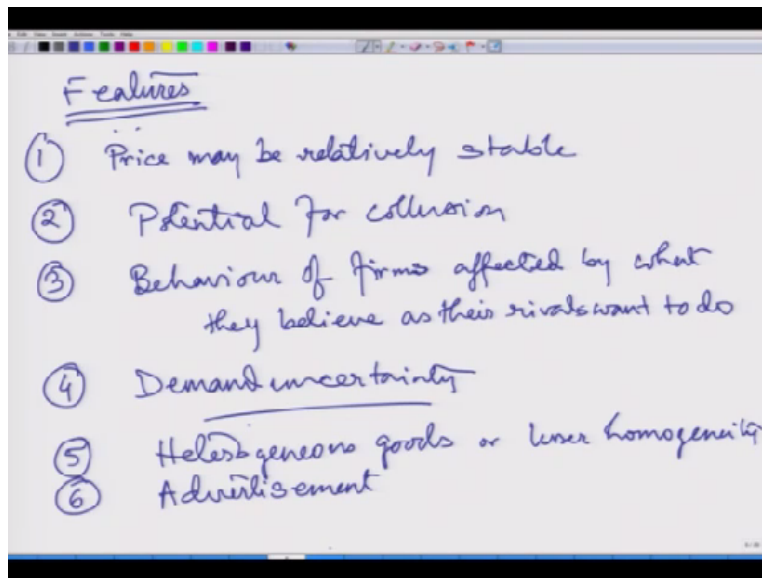 Features
① Price may be relatively stable
② Potential for collusion
③ Behaviour of firms affected by what
they believe as their rivals want to do
④ Demand uncertainty
⑤ Heterogeneous goods or lesser homogeneity
⑥ Advertisement